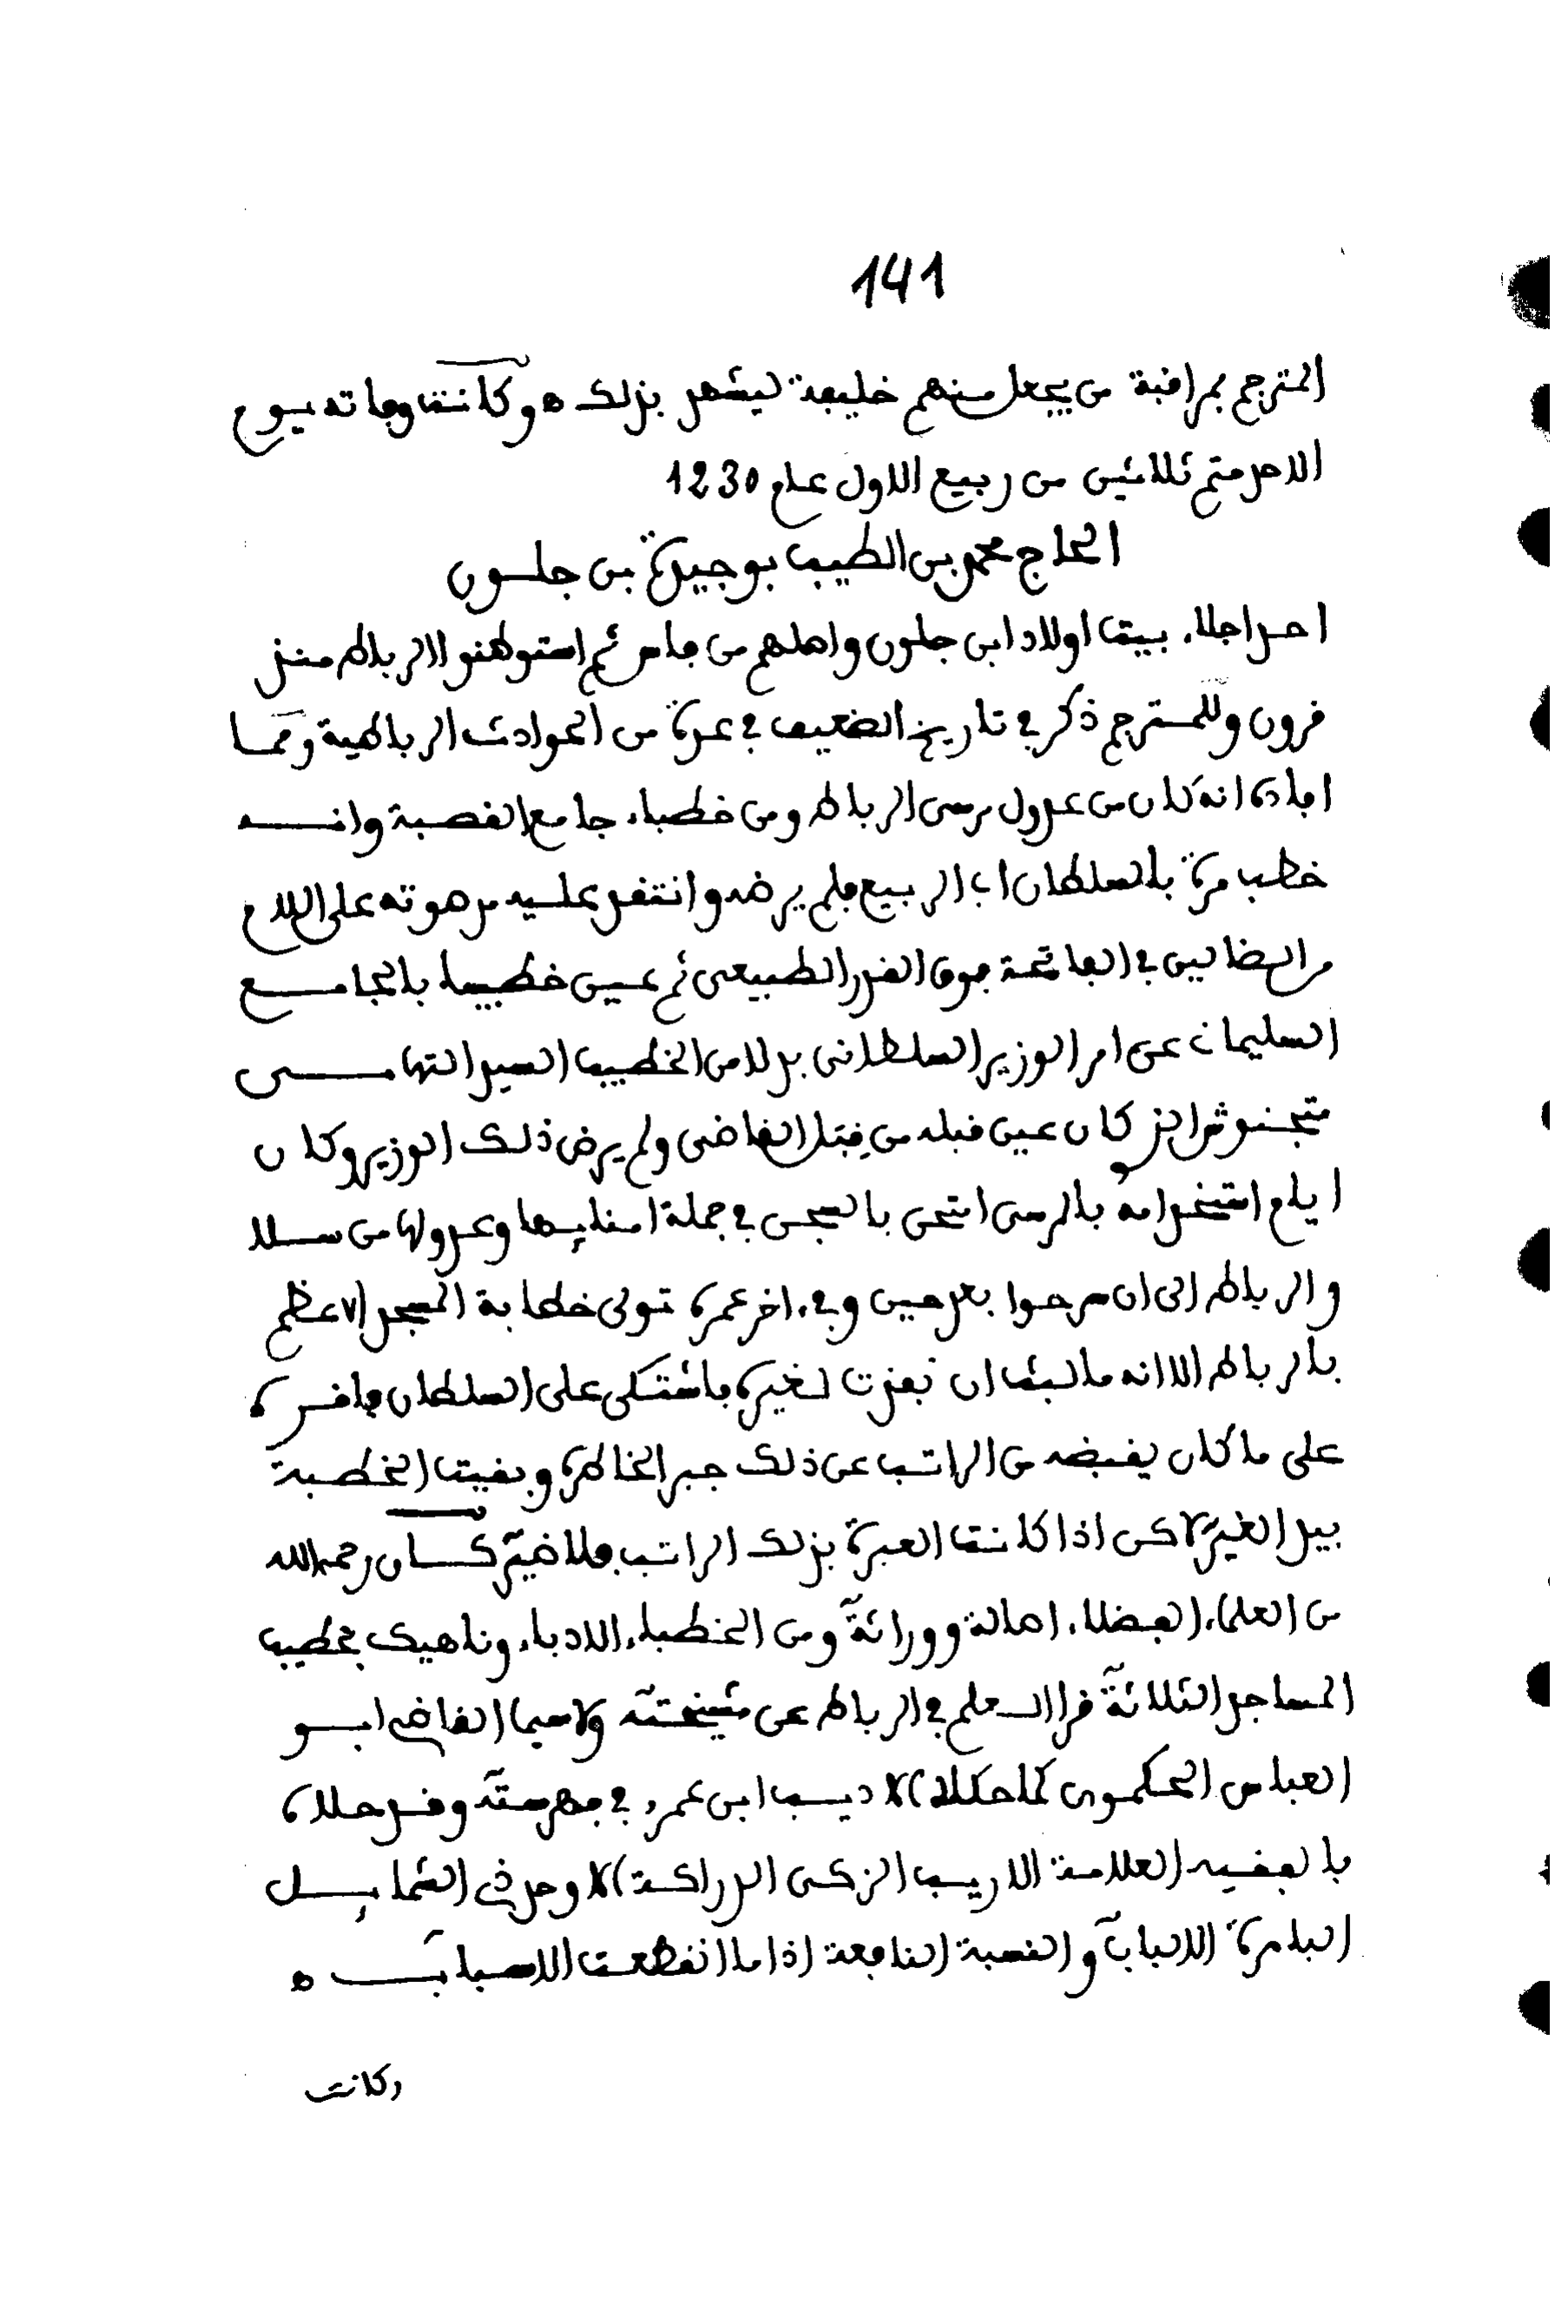 141
المترجم بمراقبة من يجعل منهم خليفة ليشهر بذلك ه وكانت وفاته يوم
الاحد متم ثلاثين من ربيع الاول عام 1230
الحاج محمد بن الطيب بوجيدة بن جلون
احد اجلاء بيت اولاد ابن جلون واصلهم من فاس ثم استوطنوا الرباط منذ
قرون وللمترجم ذكر في تاريخ الضعيف في عدة من الحوادث الرباطية ومما
افاده انه كان من عدول مرسى الرباط ومن خطباء جامع القصبة وانه
خطب مرة بالسلطان ابي الربيع فلم يرضه وانتقد عليه مد صوته على اللام
من الضالين في الفاتحة فوق القدر الطبيعي ثم عين خطيبا بالجامع
السليماني عن امر الوزير السلطاني بدلا من الخطيب السيد التهامي
متجنوش الذي كان عين قبله من قبل القاضي ولم يرض ذلك الوزير وكان
ايام استخدامه بالمرسى امتحن بالسجن في جملة امنايها وعدولها من سلا
والرباط الى ان سرحوا بعد حين وفي ءاخر عمره تولى خطابة المسجد الاعظم
بالرباط الا انه ما لبث ان نفذت لغيره فاشتكى على السلطان فاقره
على ما كان يقبضه من الراتب عن ذلك جبر الخاطره وبقيت الخطبة
بيد الغير لاكن اذا كانت العبرة بذلك الراتب فلا ضير كان رحمه الله
من العلماء الفضلاء اصالة ووراثة ومن الخطباء الادباء وناهيك بخطيب
المساجد الثلاثة قرا العلم في الرباط عن مشيخته ولاسيما القاضي ابو
العباس الحكموي كما حكاه الاديب ابن عمرو في فهرسته وقد حلاه
بالفقيه العلامة الاديب الزكي الدراكة الاوحد في الشمايل
الباهرة الالباب والنسبة النافعة اذا ما انقطعت الاسباب ه
وكانت